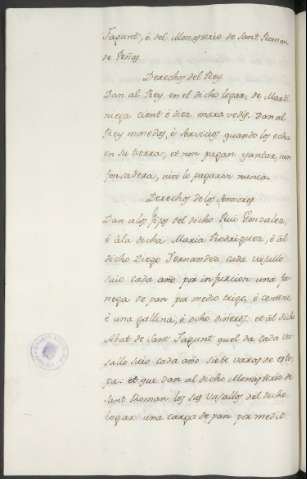 Fagunt, é del Monesterio de Sant Roman
de Peñas.
Derechos del Rey
Dan al Rey en el dicho logar, de Marti
niega cient é diez maravedis. Dan al
Rey monedas, é servicios quando los echa
en su tierra, et non pagan yantar, nin
fonsadera, nin lo pagaron nunca.
Derechos de los Señores
Dan a los fijos del dicho Rui Gonzalez,
é á la dicha Maria Rodriguez, é al
dicho Diego Fernandez cada vasallo
suio cada año por infurcion una fa-
nega de pan por medio trigo, é centeno
é una gallina, é ocho dineros. et al dicho
Abat de Sant Fagunt quel da cada va
sallo suio cada año siete varas de esto
pa. et que dan al dicho Monesterio de
Sant Roman los sus vasallos del dicho
logar una carga de pan por medio